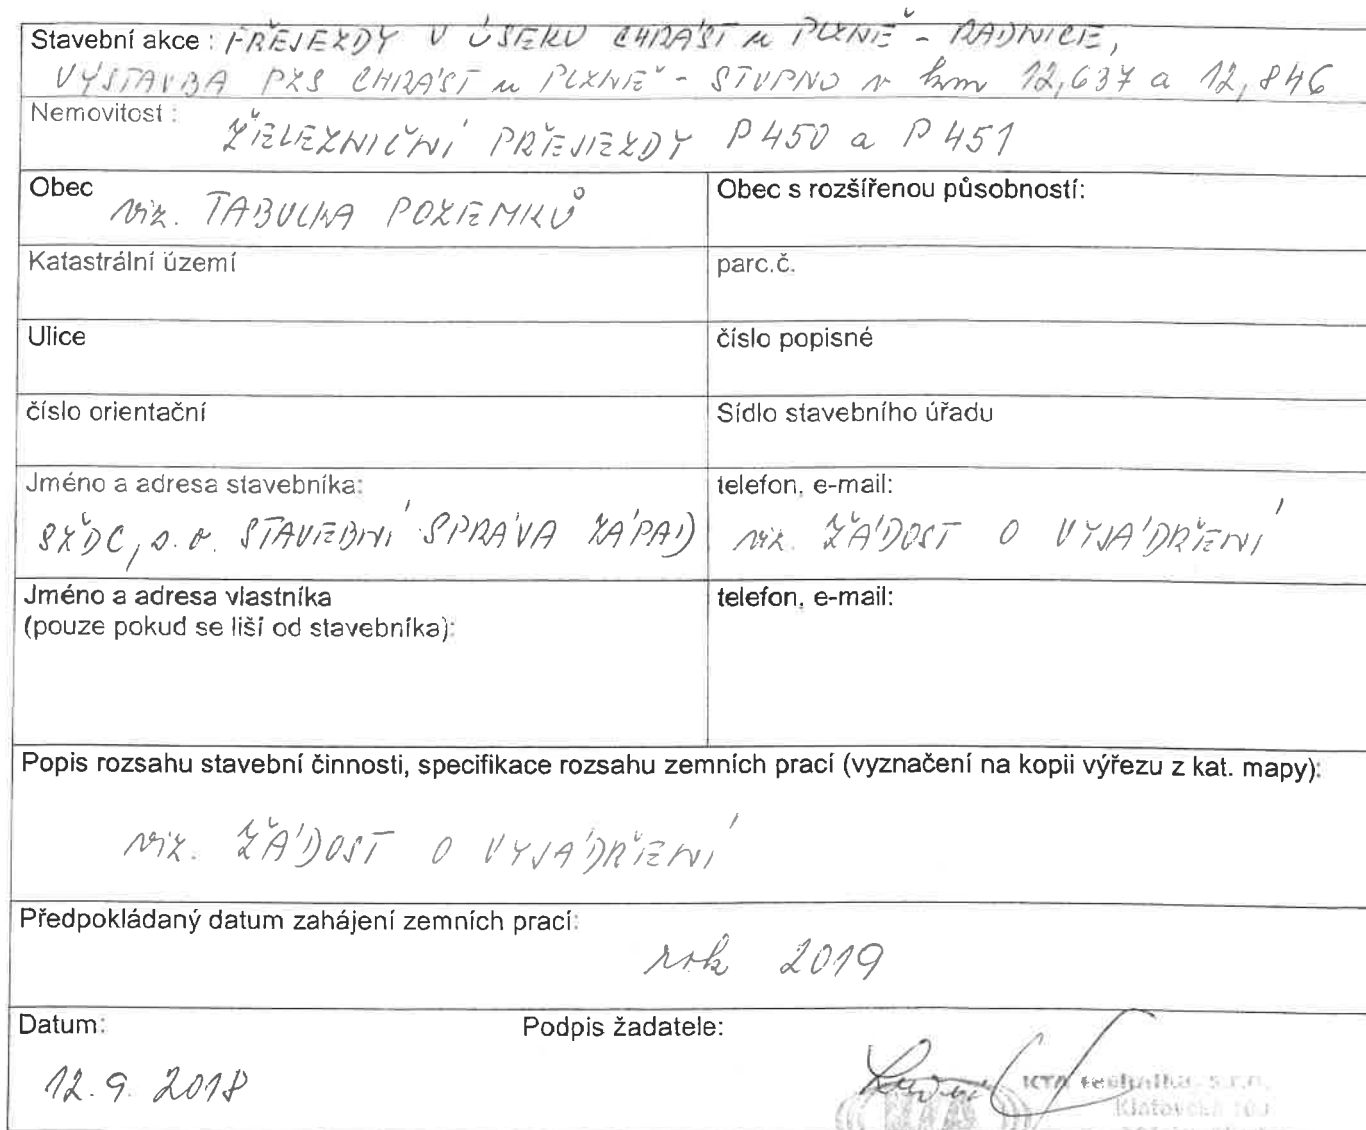 Stavební akce : PŘEJEZDY V ÚSEKU CHRÁST u PLZNĚ - RADNICE,
VÝSTAVBA PZS CHRÁST u PLZNĚ - STUPNO v km 12,637 a 12,846
Nemovitost :
ŽELEZNIČNÍ PŘEJEZDY P450 a P451
Obec viz. TABULKA POZEMKŮ
Obec s rozšířenou působností:
Katastrální území
parc.č.
Ulice
číslo popisné
číslo orientační
Sídlo stavebního úřadu
Jméno a adresa stavebníka:
SŽDC, s.o. STAVEBNÍ SPRÁVA ZÁPAD
telefon, e-mail:
viz. ŽÁDOST O VYJÁDŘENÍ
Jméno a adresa vlastníka
(pouze pokud se liší od stavebníka):
telefon, e-mail:
Popis rozsahu stavební činnosti, specifikace rozsahu zemních prací (vyznačení na kopii výřezu z kat. mapy):
viz. ŽÁDOST O VYJÁDŘENÍ
Předpokládaný datum zahájení zemních prací:
rok 2019
Datum:
12.9.2018
Podpis žadatele:
technika, s.r.o.
Klatovská